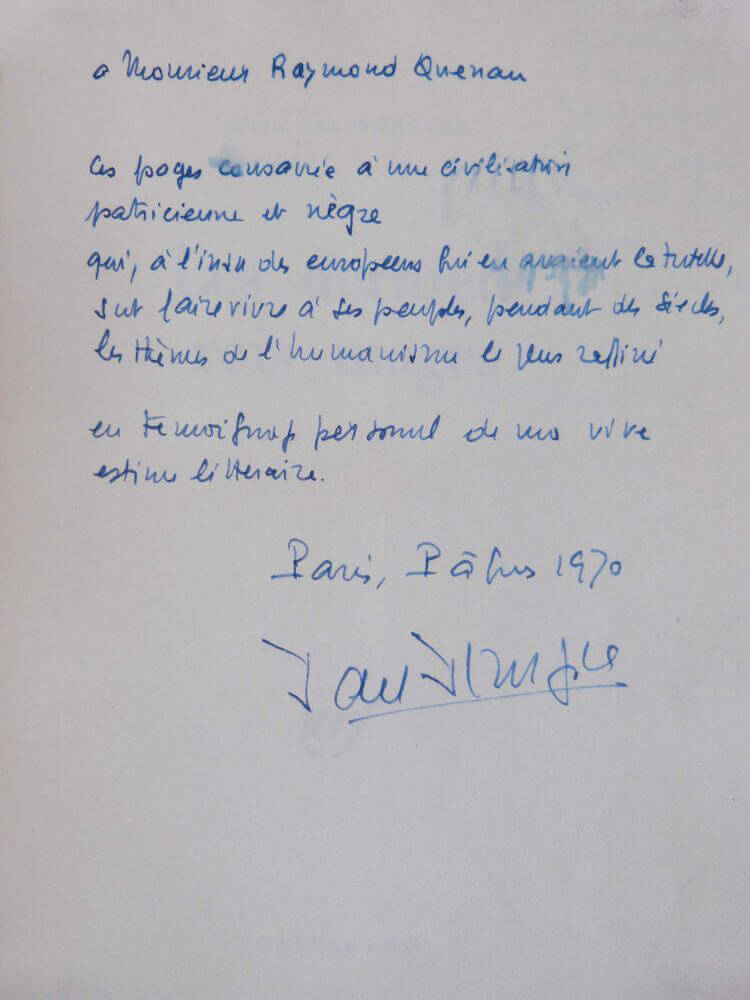 a Monsieur Raymond Quenau
Ces pages consacrée à une civilisation
patricienne et nègre
qui, à l'insu des europeens qui en avaient la tutelle,
sut faire vivre à ses peuples, pendant des siècles,
les thèmes de l'humanisme le plus raffiné
en temoignage personnel de ma vive
estime litteraire.
Paris, Pâques 1970